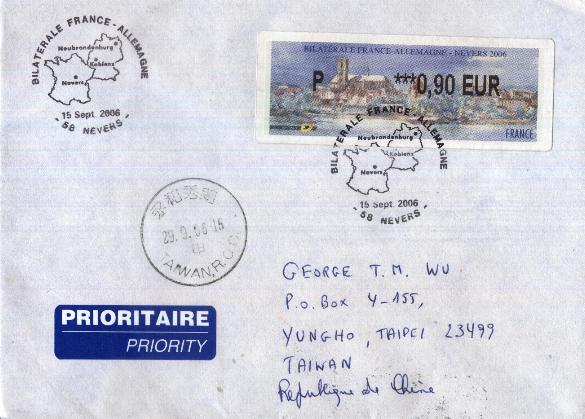 BILATERALE FRANCE-ALLEMAGNE
Neubrandenburg
Koblenz
Nevers
15 Sept. 2006
- 58 NEVERS -
BILATERALE FRANCE-ALLEMAGNE - NEVERS 2006
P ***0,90 EUR
FRANCE
BILATERALE FRANCE-ALLEMAGNE
Neubrandenburg
Koblenz
Nevers
15 Sept. 2006
- 58 NEVERS -
永和秀朗
TAIWAN, R.O.C.
PRIORITAIRE
PRIORITY
GEORGE T. M. WU
P.O. BOX 4-155,
YUNGHO, TAIPEI 23499
TAIWAN
République de Chine